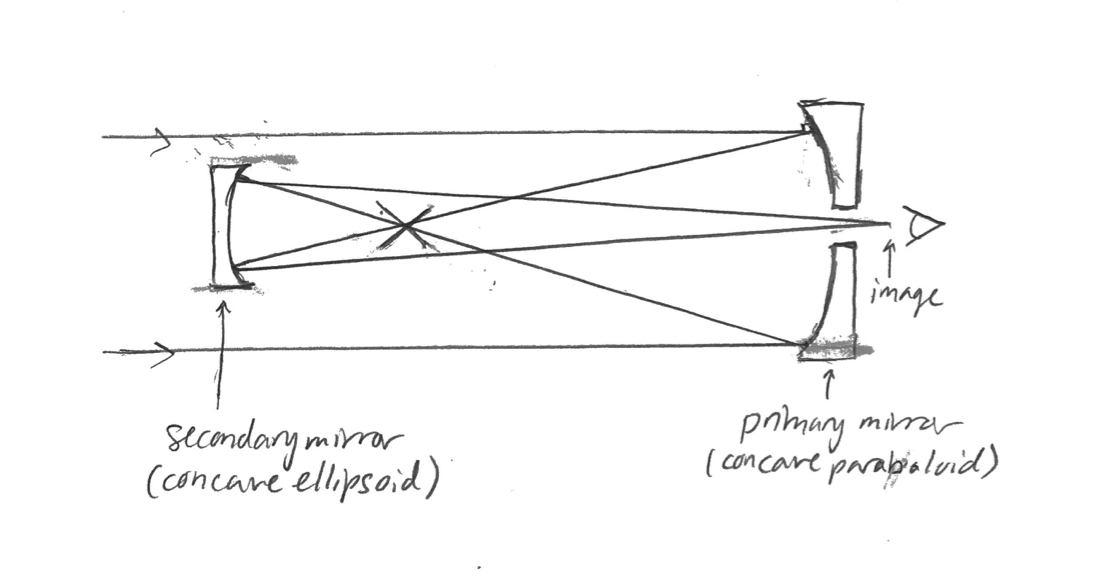 image
secondary mirror
(concave ellipsoid)
primary mirror
(concave parabaloid)